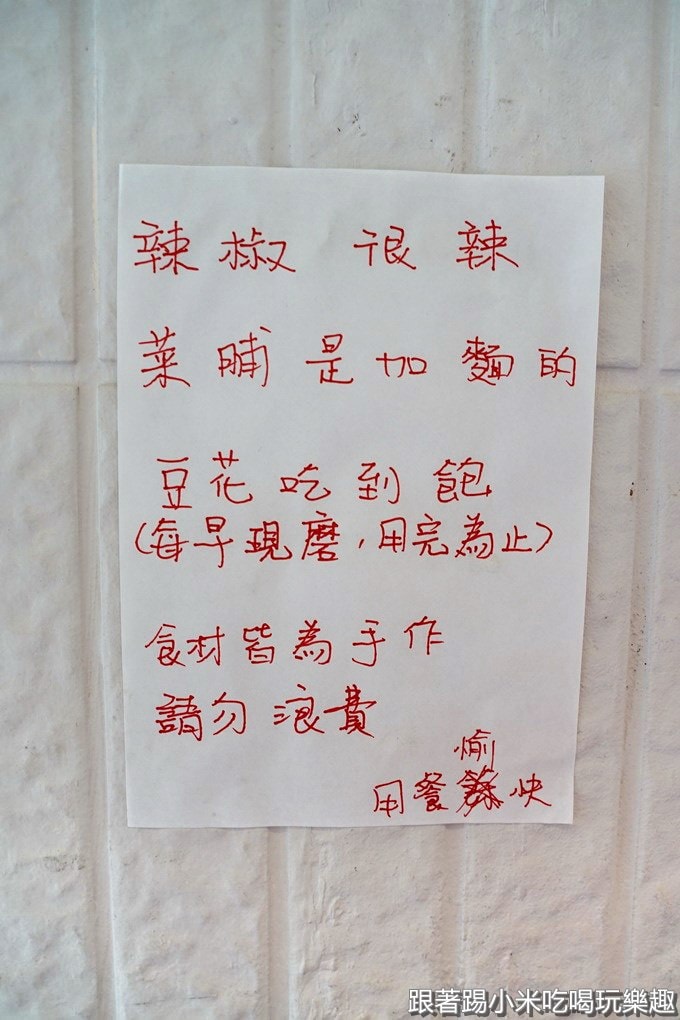 辣椒 很 辣
菜脯是加麵的
豆花吃到飽
(每早現磨,用完為止)
食材皆為手作
請勿浪費
愉
用餐快
跟著踢小米吃喝玩樂趣